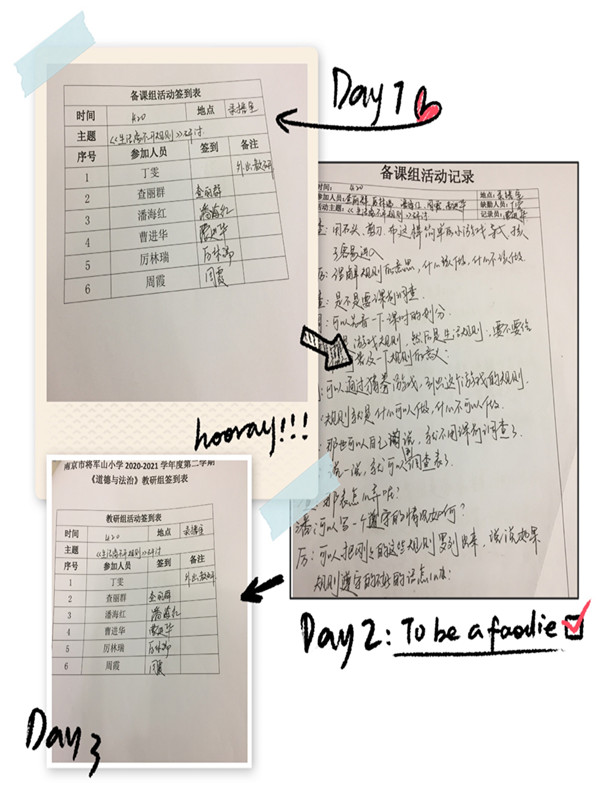 Day 1
备课组活动签到表
时间 4.20 地点 录播室
主题 《生活离不开规则》研讨
序号 参加人员 签到 备注
1 丁雯 外出教研
2 查丽群 查丽群
3 潘海红 潘海红
4 曹进华 曹进华
5 厉林瑞 厉林瑞
6 周霞 周霞
hooray!!!
备课组活动记录
时间: 4.20 地点: 录播室
参加人员: 查丽群 厉林瑞 潘海红 周霞 曹进华 缺勤人员: 丁雯
活动主题: 《生活离不开规则》研讨 记录员: 曹进华
查: 用石头、剪刀、布这样简单的小游戏导入
容易进入
厉: 理解规则的意思, 什么该做, 什么不该做
查: 是不是要课前调查
: 可以先看一下课时的划分
游戏规则, 然后是生活规则, 要不要给
一下规则的意义
: 可以通过猜拳游戏, 引出这个游戏的规则.
规则就是什么可以做, 什么不可以做.
: 那也可以自己说, 就不用课前调查了
说一说, 就可以调查表了.
那表怎么弄呢?
潘: 可以写一个遵守的情况如何?
厉: 可以把刚才的这些规则罗列出来, 说说如果
规则遵守的
Day 2: To be a foodie
南京市将军山小学 2020-2021 学年度第二学期
《道德与法治》教研组签到表
教研组活动签到表
时间 4.20 地点 录播室
主题 《生活离不开规则》研讨
序号 参加人员 签到 备注
1 丁雯 外出教研
2 查丽群 查丽群
3 潘海红 潘海红
4 曹进华 曹进华
5 厉林瑞 厉林瑞
6 周霞 周霞
Day 3